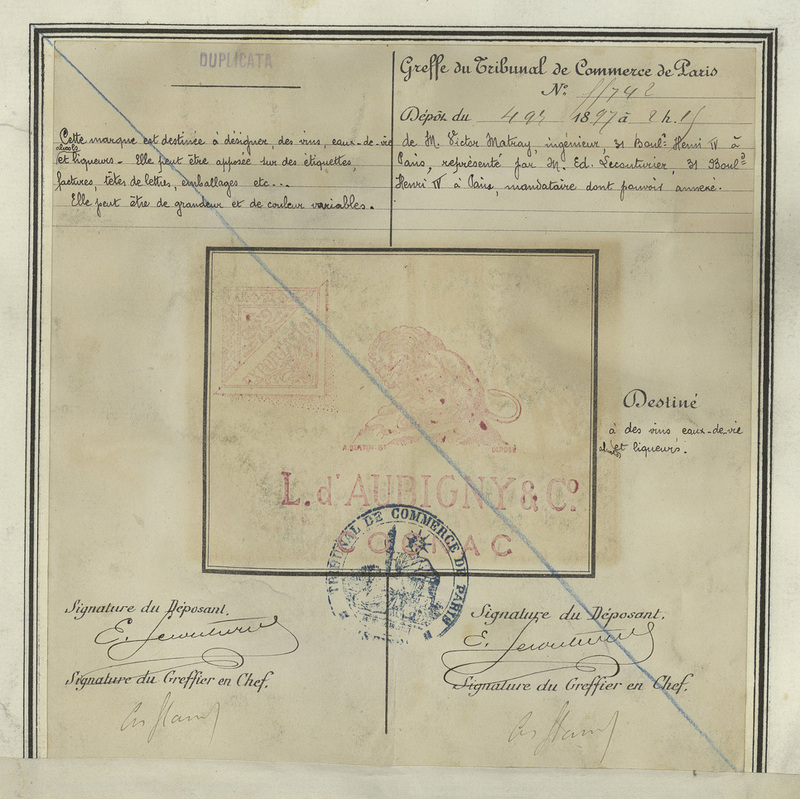 DUPLICATA
Cette marque est destinée à désigner, des vins, eaux-de-vie
alcools
et liqueurs - Elle peut être apposée sur des étiquettes,
factures, têtes de lettres, emballages etc...
Elle peut être de grandeur et de couleur variables.
Greffe du Tribunal de Commerce de Paris
No
Dépôt du 1897 à 2 h. 15
de M. Victor Matray, ingénieur, 31 Boulᵈ Henri IV à
Paris, représenté par M. Ed. Lecouturier, 31 Boulᵈ
Henri IV à Paris, mandataire dont pouvoir annexé.
L. d'AUBIGNY & Cº
COGNAC
TRIBUNAL DE COMMERCE DE PARIS
Destiné
à des vins eaux-de-vie
et liqueurs.
Signature du Déposant.
E. Lecouturier
Signature du Greffier en Chef.
Signature du Déposant.
E. Lecouturier
Signature du Greffier en Chef.